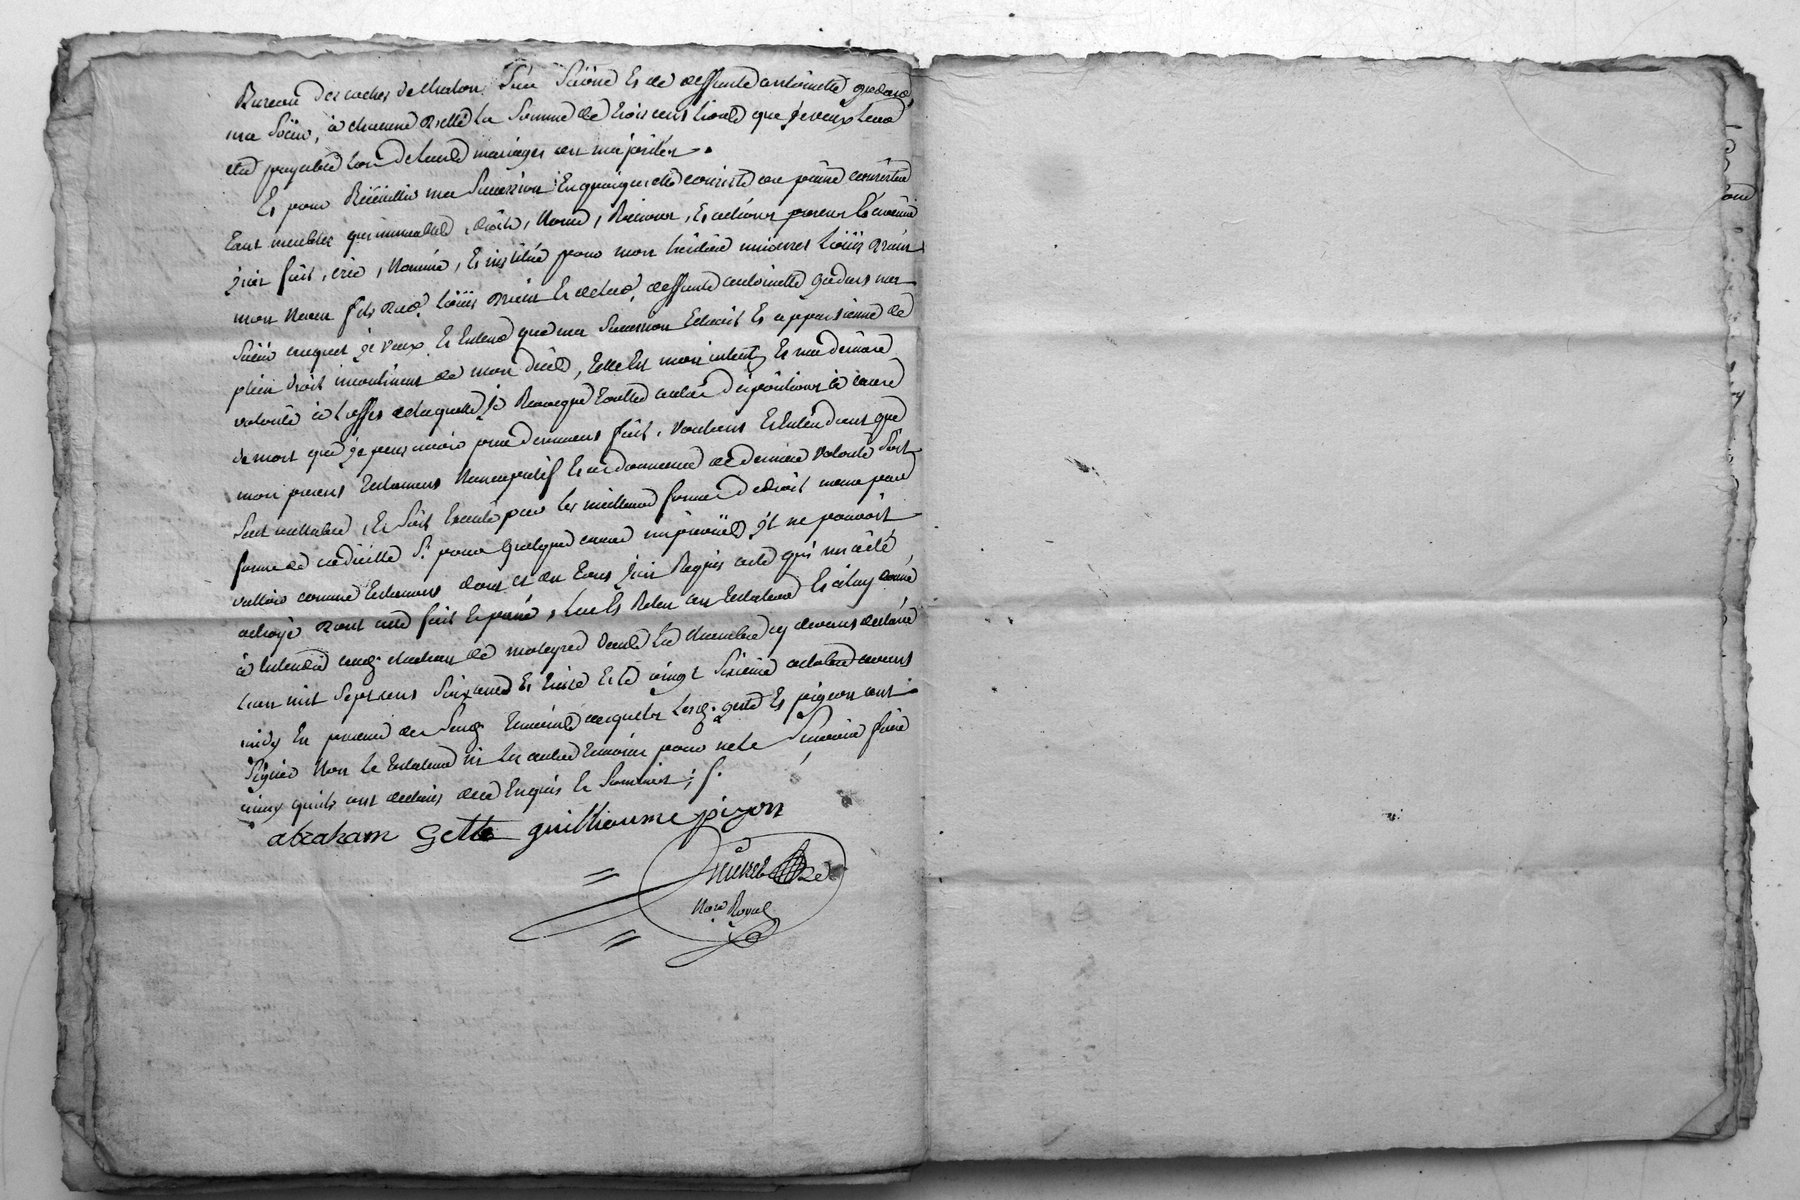 Bureau des coches de Chalon Sur Saône Et de deffunte antoinette
ma Sœur, à chacune d'elle La Somme de trois cens livres que je veux leur
etre payable Lors de leurs mariages ou majorites.
Et pour Recüeillir ma Succession En quoiqu'elle consiste ou puisse consister
tant meubles qu'immeubles, droits, Noms, Raisons, Et actions presens Et avenir
j'ai fait, crée, Nommé, Et institué pour mon heritier universel Loüis
mon Neveu fils dud. Loüis Et de lad. deffunte antoinette ma
Sœur auquel je veux Et Entend que ma Succession Echoit Et appartienne de
plein droit incontinent de mon decès, telle Est mon intent. Et ma derniere
volonté à L'effet de laquelle Je Revoque toutte autre dispositions à cause
de mort que je peus avoir pour devant fait, voulant Et Entendant que
mon present testament Nuncupatif Et ordonnance de derniere volonté Soit
Seul vallable, Et Soit Executé par les meilleures formes de droit meme par
forme de codicille Si pour quelque cause impreveüe il ne pouvoit
valloir comme testament dont et du tout j'ai Requis acte qui m'a été
octroyé dont acte fait Et passé, Leu Et Releu au testateur Et a luy donné
à Entendre aud. chateau de dans La chambre cy devant declarée
L'an mil Sept cens Soixante Et treize Et Le vingt Sixieme octobre avant
midy En presence des Sus. temoins lesquels Lesd. gette Et pigeon ont
Signés Non Le testateur ni les autres temoins pour ne le Scavoir faire
ainsy qu'ils ont declarés de ce Enquis Et Sommés ;
abraham Gette guilliaume pizon
Nore Royal